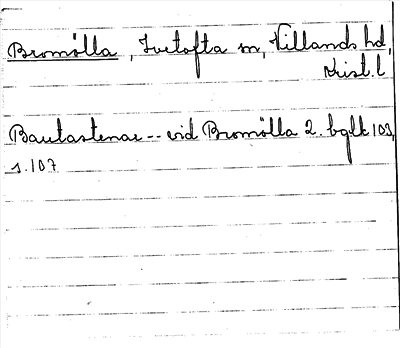 Bromölla, Ivetofta sn, Villands hd,
Krist. l
Bautastenar -- vid Bromölla 2. bglk 103,
s. 107